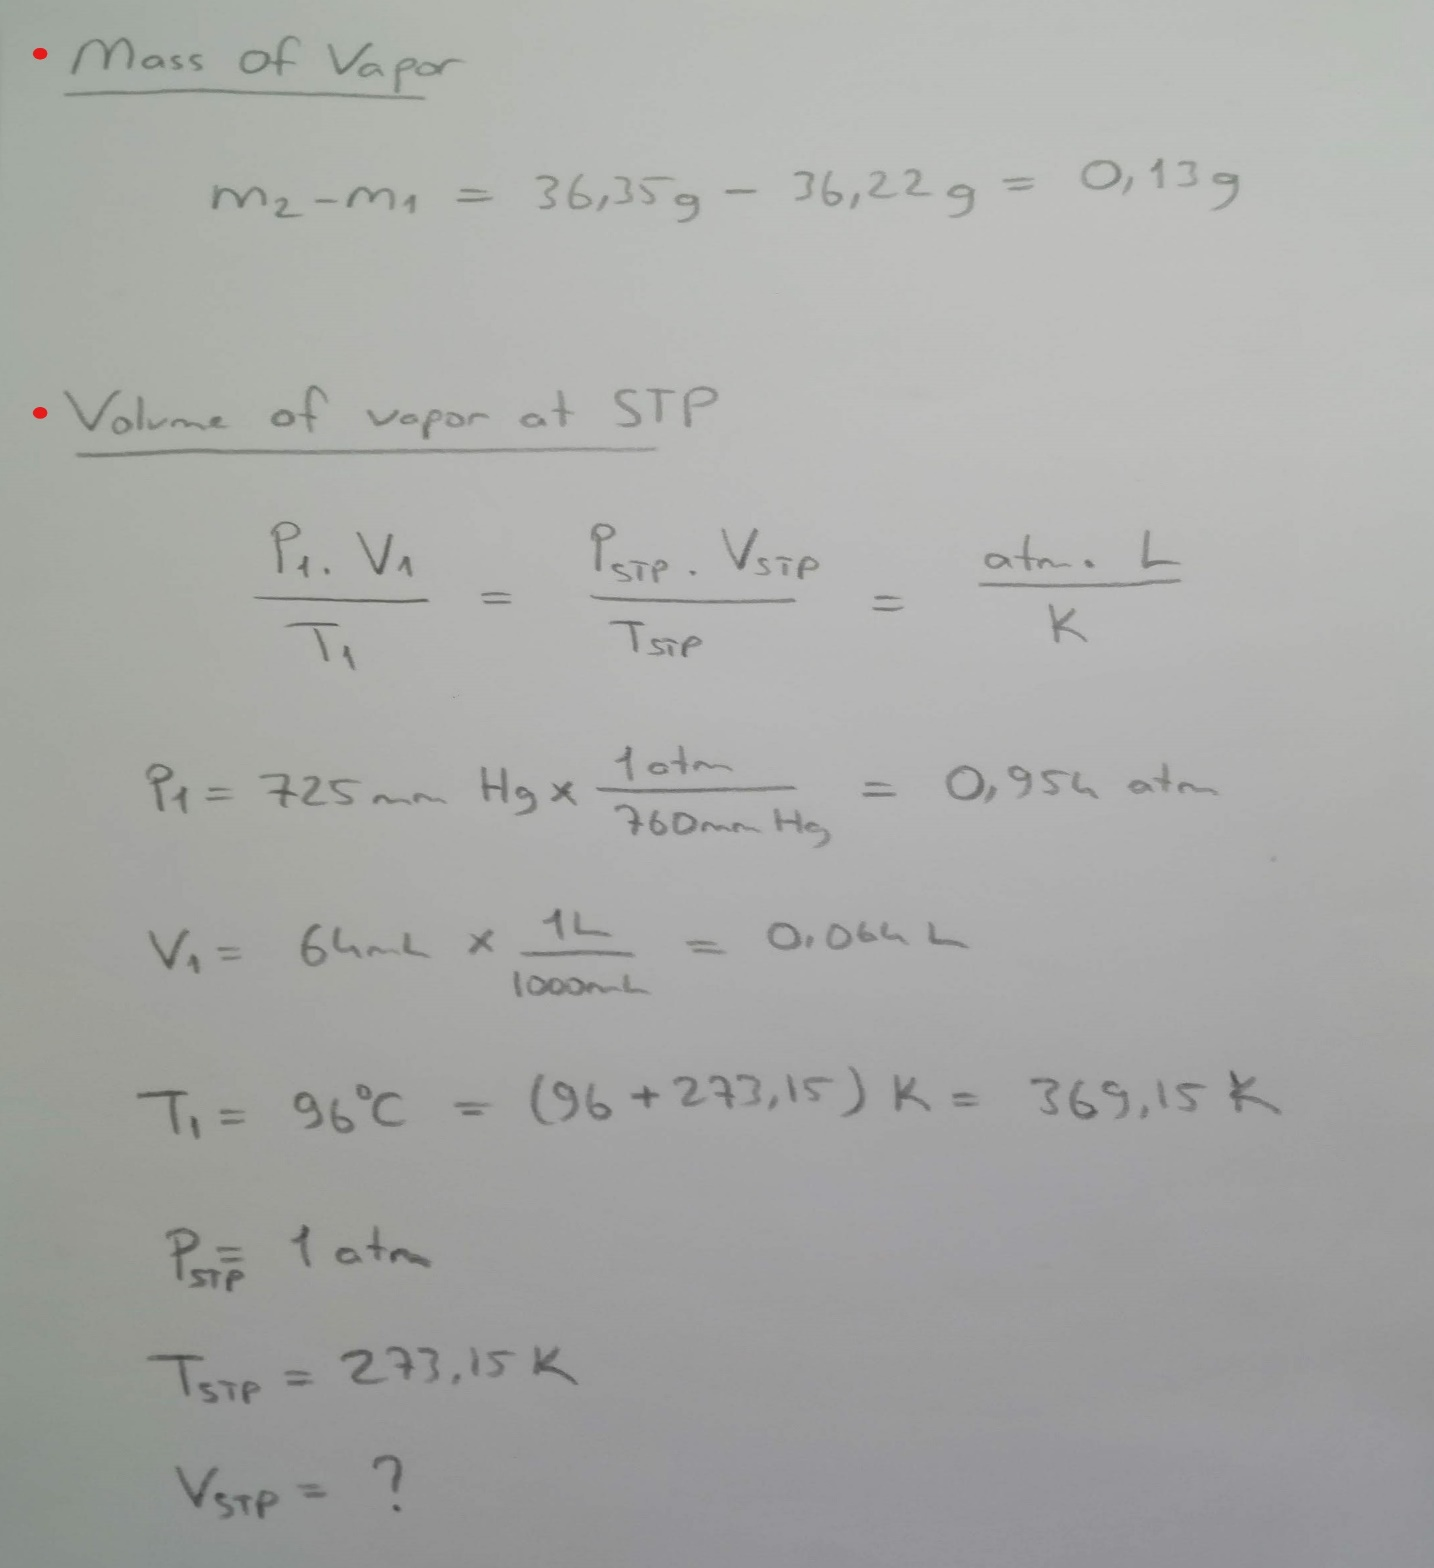 • Mass of Vapor
m₂ - m₁ = 36,35g - 36,22g = 0,13g
• Volume of vapor at STP
P₁ . V₁ / T₁ = P_STP . V_STP / T_STP = atm . L / K
P₁ = 725mm Hg x 1 atm / 760mm Hg = 0,954 atm
V₁ = 64mL x 1L / 1000mL = 0.064 L
T₁ = 96°C = (96 + 273,15) K = 369,15 K
P_STP = 1 atm
T_STP = 273,15 K
V_STP = ?